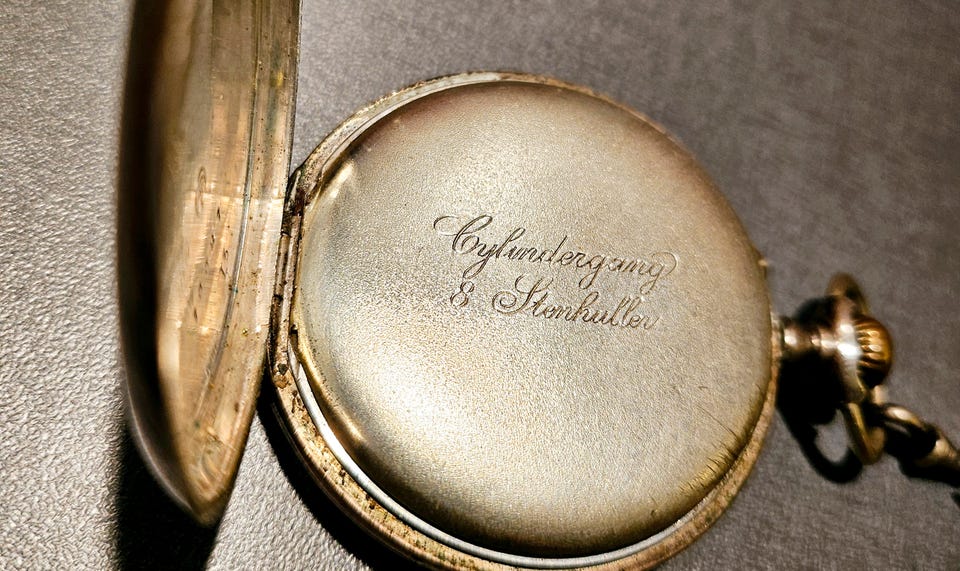 Cylindergang
8 Stenhuller